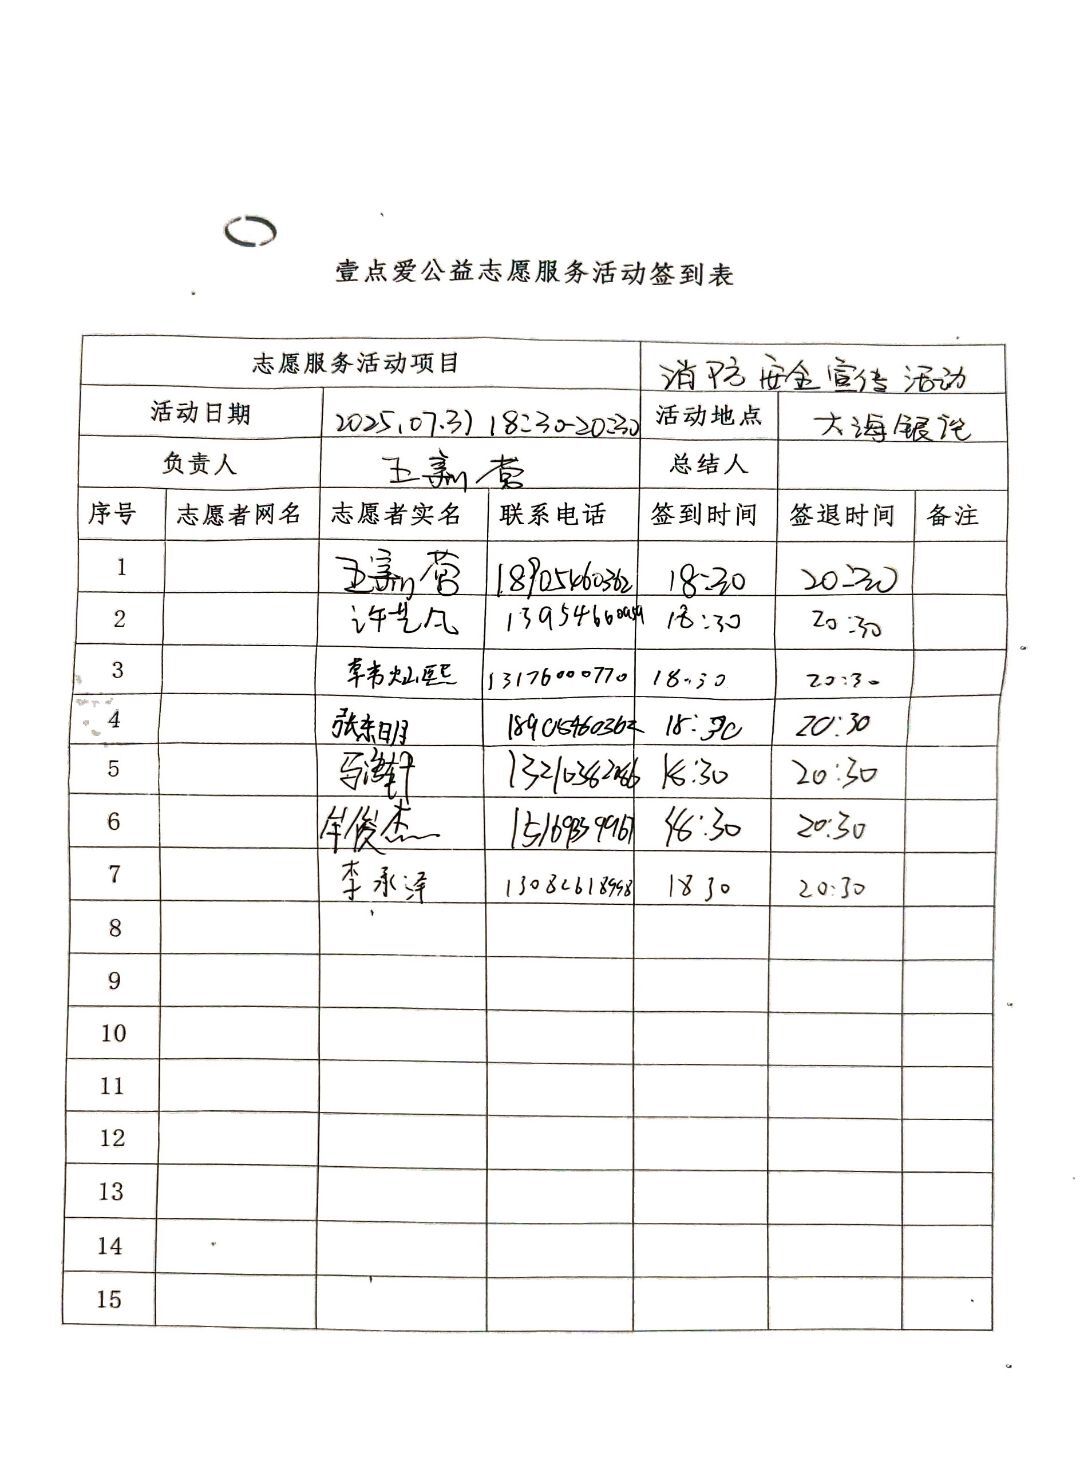 壹点爱公益志愿服务活动签到表
志愿服务活动项目 消防安全宣传活动
活动日期 2025.07.31 18:30-20:30 活动地点 大海银沱
负责人 王嘉营 总结人
序号 志愿者网名 志愿者实名 联系电话 签到时间 签退时间 备注
1 王嘉营 18905460362 18:30 20:30
2 许芝凡 18:30 20:30
3 韩灿熙 13176000770 18:30 20:30
4 张东明 18905460362 18:30 20:30
5 18:30 20:30
6 牟俊杰 15169839967 18:30 20:30
7 李承泽 13082618998 18 30 20:30
8
9
10
11
12
13
14
15